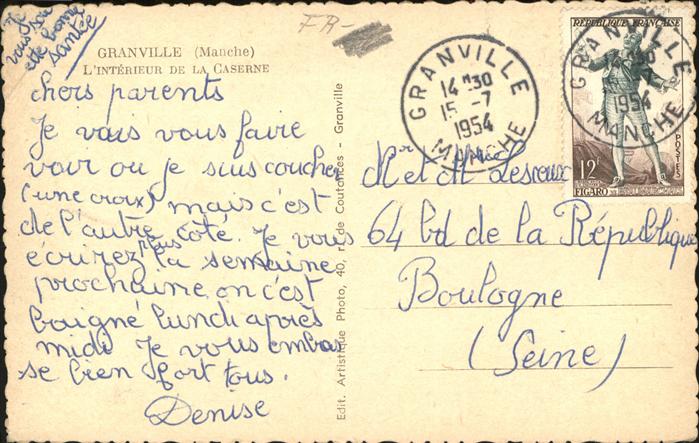 Je
vous
été bonne
santée
FR-
GRANVILLE (Manche)
L'INTÉRIEUR DE LA CASERNE
chers parents
Je vais vous faire
voir ou je suis coucher
(une croix) mais c'est
de l'autre coté. Je vous
écrirez plus la semaine
prochaine on c'est
baigné lundi après
midi Je vous embras
se bien fort tous.
Denise
Edit. Artistique Photo, 40, r. de Coutances - Granville
GRANVILLE
14 H 30
15 -7
1954
MANCHE
RÉPUBLIQUE FRANÇAISE
GRANVILLE
1954
MANCHE
POSTES
12F
FIGARO
Mr et Mme Lesroux
64 bd de la République
Boulogne
(Seine)